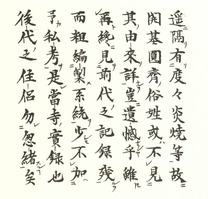 遥隔有度々炎焼等故
闕其圓齊俗姓或不見
其由来詳豈遺憾乎雖
再終見前代之記録残
而粗編製系統步不加
予私考是當寺實録也
後代之住侶勿忽緒矣